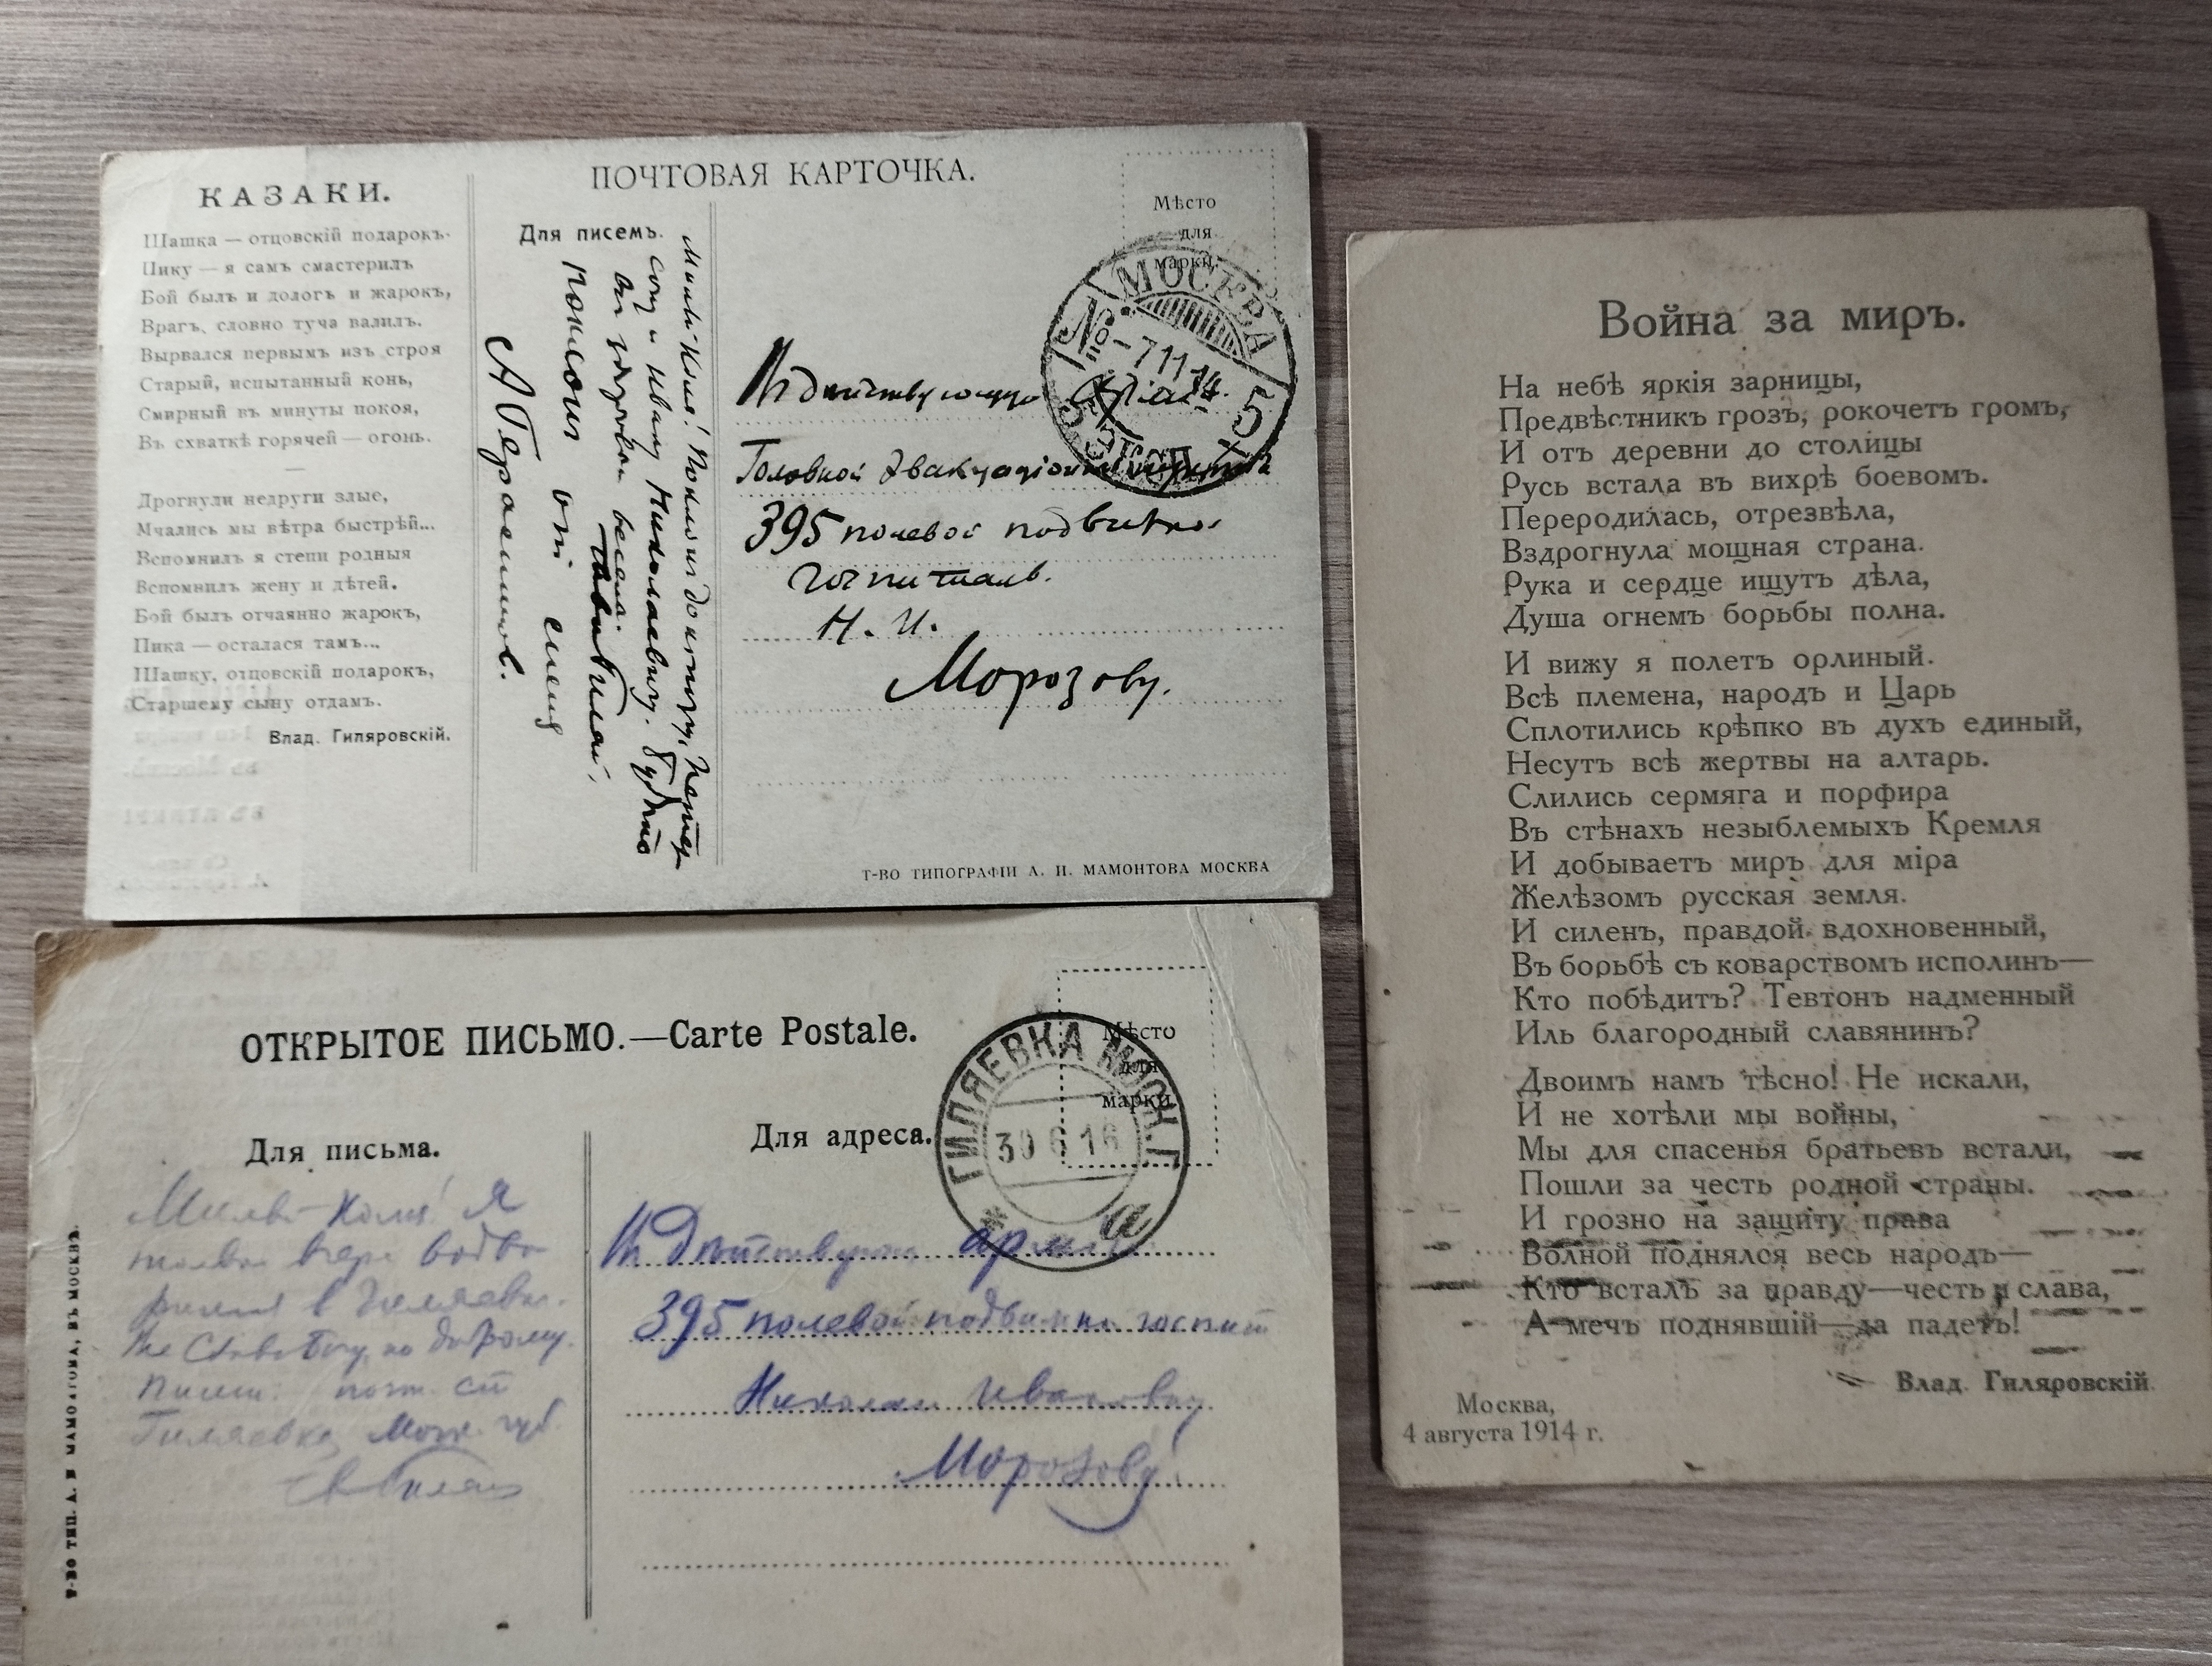 КАЗАКИ.
Шашка — отцовскій подарокъ.
Пику — я самъ смастерилъ
Бой былъ и дологъ и жарокъ,
Врагъ, словно туча валилъ.
Вырвался первымъ изъ строя
Старый, испытанный конь,
Смирный въ минуты покоя,
Въ схваткѣ горячей — огонь.
—
Дрогнули недруги злые,
Мчались мы вѣтра быстрѣй...
Вспомнилъ я степи родныя
Вспомнилъ жену и дѣтей.
Бой былъ отчаянно жарокъ,
Пика — осталася тамъ...
Шашку, отцовскій подарокъ,
Старшему сыну отдамъ.
Влад. Гиляровскій.
ПОЧТОВАЯ КАРТОЧКА.
Для писемъ.
Поклонись доктору,
и Ивану Николаевичу. Будьте
здоровы
поклон от
Мѣсто
для
марки.
МОСКВА
5
-7 11 14
5 ЭКСП.
Въ действующую
Головной эвакуаціонный
395 полевой подвижной
госпиталь.
Н. И.
Морозову.
Т-ВО ТИПОГРАФІИ А. И. МАМОНТОВА МОСКВА
ОТКРЫТОЕ ПИСЬМО.—Carte Postale.
Для письма.
Коля! Я
в Гиляевке.
Гиляевка Моск. губ.
Для адреса.
Мѣсто
для
марки.
ГИЛЯЕВКА МОСК. Г.
30 6 16
а
Въ Действующ. армію
395 полевой подвижн. госпит
Николаю Ивановичу
Морозову
Т-ВО ТИП. А. И МАМОНТОВА, ВЪ МОСКВѢ.
Война за миръ.
На небѣ яркія зарницы,
Предвѣстникъ грозъ, рокочетъ громъ,
И отъ деревни до столицы
Русь встала въ вихрѣ боевомъ.
Переродилась, отрезвѣла,
Вздрогнула мощная страна.
Рука и сердце ищутъ дѣла,
Душа огнемъ борьбы полна.
И вижу я полетъ орлиный.
Всѣ племена, народъ и Царь
Сплотились крѣпко въ духъ единый,
Несутъ всѣ жертвы на алтарь.
Слились сермяга и порфира
Въ стѣнахъ незыблемыхъ Кремля
И добываетъ миръ для міра
Желѣзомъ русская земля.
И силенъ, правдой вдохновенный,
Въ борьбѣ съ коварствомъ исполинъ—
Кто побѣдитъ? Тевтонъ надменный
Иль благородный славянинъ?
Двоимъ намъ тѣсно! Не искали,
И не хотѣли мы войны,
Мы для спасенья братьевъ встали,
Пошли за честь родной страны.
И грозно на защиту права
Волной поднялся весь народъ—
Кто всталъ за правду—честь и слава,
А мечъ поднявшій—да падетъ!
Влад. Гиляровскій.
Москва,
4 августа 1914 г.